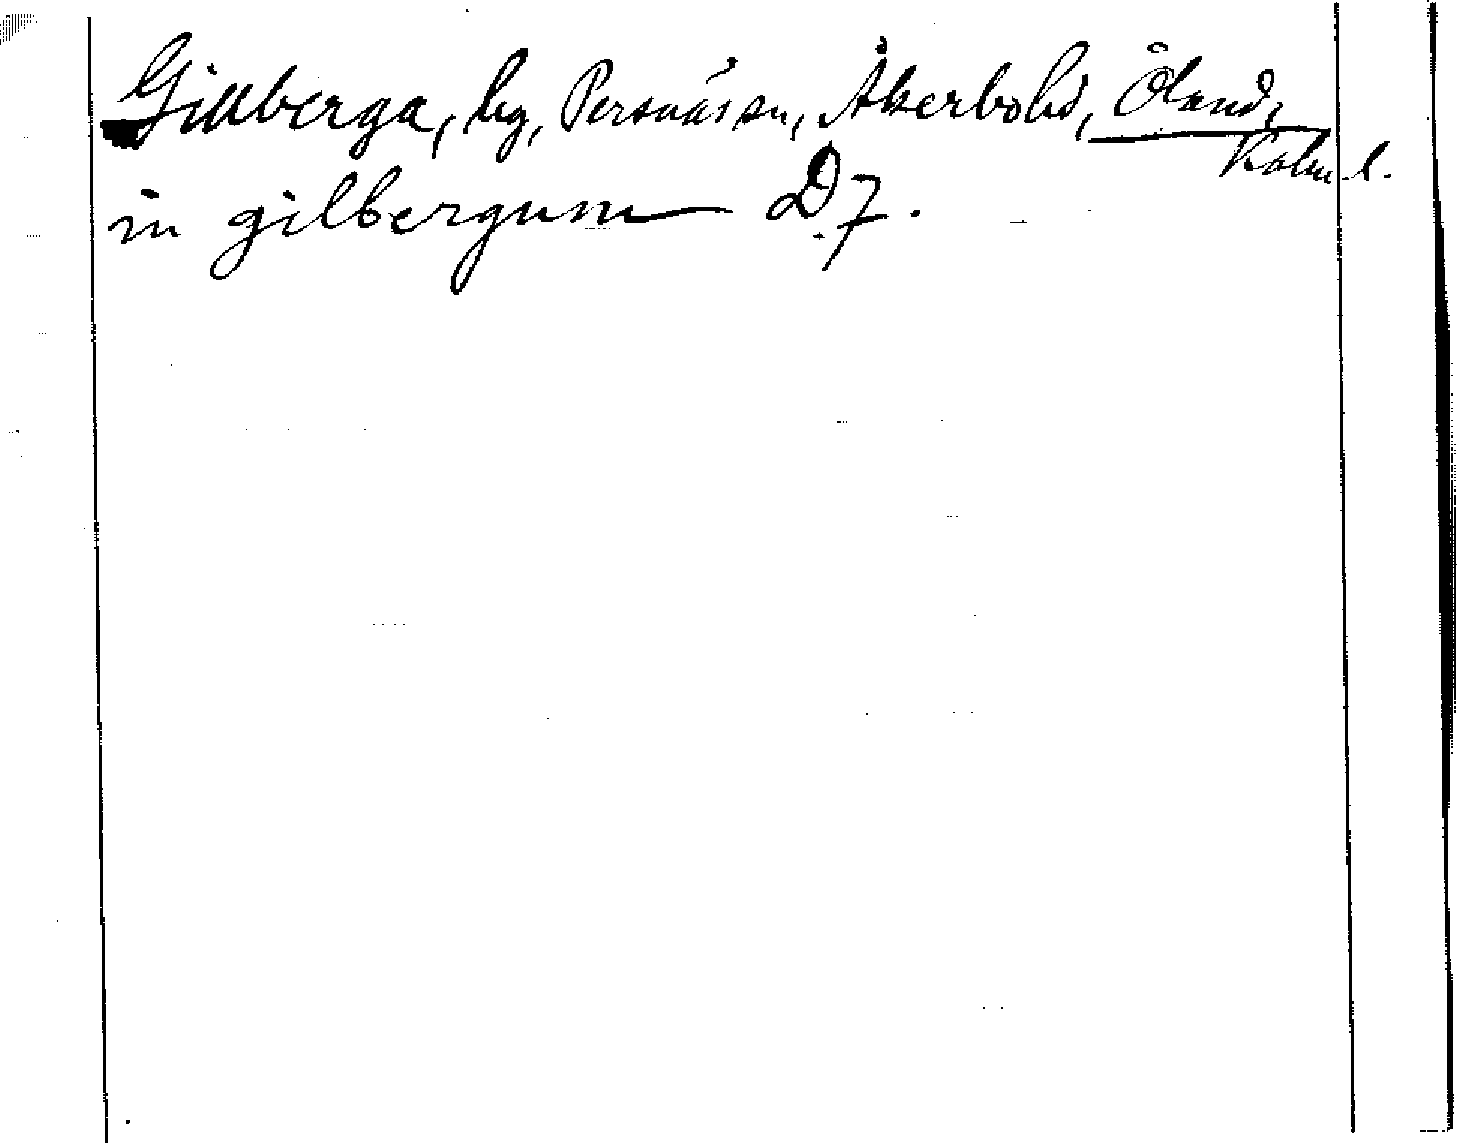 Gillberga, by, Persnäs sn, Åkerbo hd, Öland,
Kalm. l.
in gilbergum D 7.